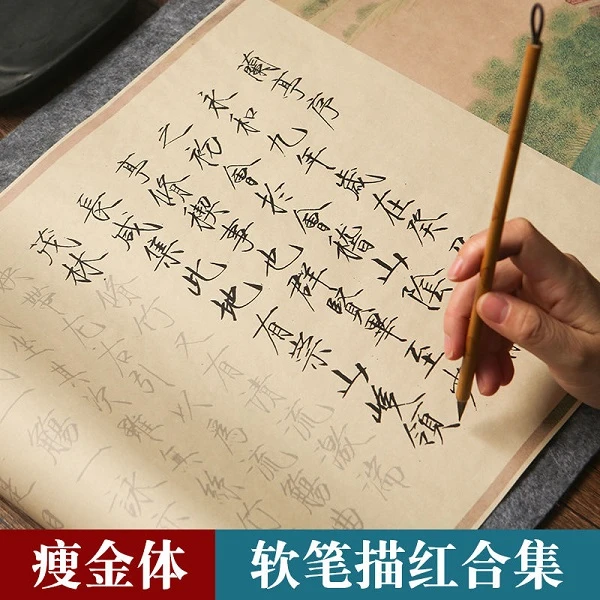 蘭亭序
永和九年歲在癸
之初會於會稽山陰
亭脩禊事也群賢畢至
長咸集此地有崇山峻領
茂林脩竹又有清流激湍
映帶左右引以為流觴曲
坐其次雖無絲竹
一觴一詠
瘦金体
软笔描红合集